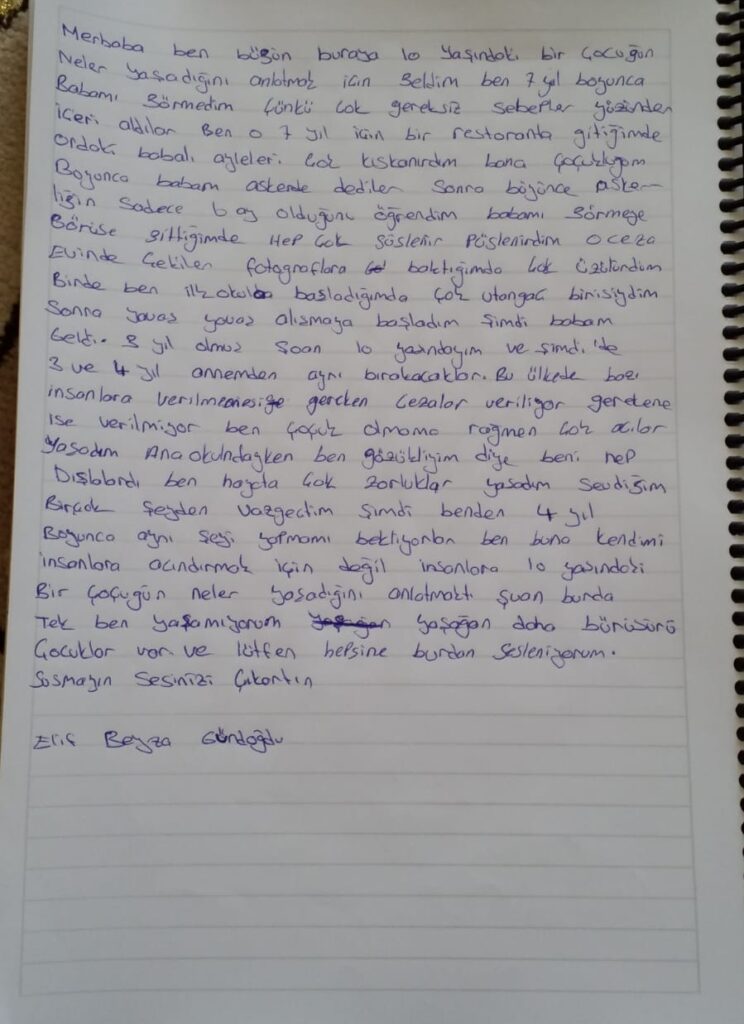 Merhaba ben bügün buraya 10 yaşındaki bir çocuğun
Neler yaşadığını anlatmak için geldim ben 7 yıl boyunca
Babamı görmedim çünkü çok gereksiz sebepler yüzünden
içeri aldılar Ben o 7 yıl için bir restoranta gitiğimde
ordaki babalı ayleleri çok kıskanırdım bana çoçukluğum
Boyunca babam askerde dediler sonra böğünce asker-
liğin sadece 6 ay olduğunu öğrendim babamı görmeye
Görüşe gittiğimde Hep çok süslenir püslenirdim o ceza
Evinde Çekilen fotograflara baktığımda çok üzülürdüm
Birde ben ilkokula başladığımda çok utangaç birisiydim
Sonra yavaş yavaş alışmaya başladım şimdi babam
Geldi.. 3 yıl olmuş şoan 10 yaşındayım ve şimdi'de
3 ve 4 yıl annemden ayrı bırakacaklar. Bu ülkede bazı
insanlara verilmemesige gereken cezalar veriliyor gerekene
ise verilmiyor ben çoçuk olmama rağmen çok acılar
Yaşadım Anaokundayken ben gözükliyim diye beni hep
Dışlardı ben hayata çok zorluklar yaşadım sevdiğim
Birçok şeyden vazgectim şimdi benden 4 yıl
Boyunca aynı şeyi yapmamı bekliyorlar ben buna kendimi
insanlara acındırmak için değil insanlara 10 yaşındaki
Bir çoçuğun neler yaşadığını anlatmaktı şuan burda
Tek ben yaşamıyorum yaşağan daha bürüsürü
Çocuklar var ve lütfen hepsine burdan sesleniyorum.
Susmayın Sesinizi Çıkartın
Elif Beyza Gündoğdu